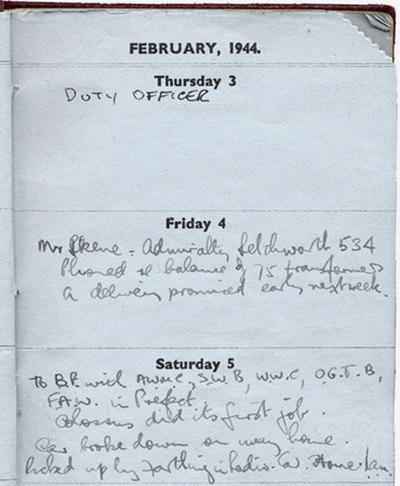 FEBRUARY, 1944.
Thursday 3
DUTY OFFICER
Friday 4
Mr Skene - Admiralty Letchworth 534
Phoned re balance of 75 transformers
a delivery promised early next week.
Saturday 5
To B.P. with A.W.M.C, S.W.B, W.W.C, O.G.T-B,
F.A.W. in Prefect.
Colossus did its first job.
Car broke down on way home.
Picked up by Farthing in Radio Car. Home 1am.